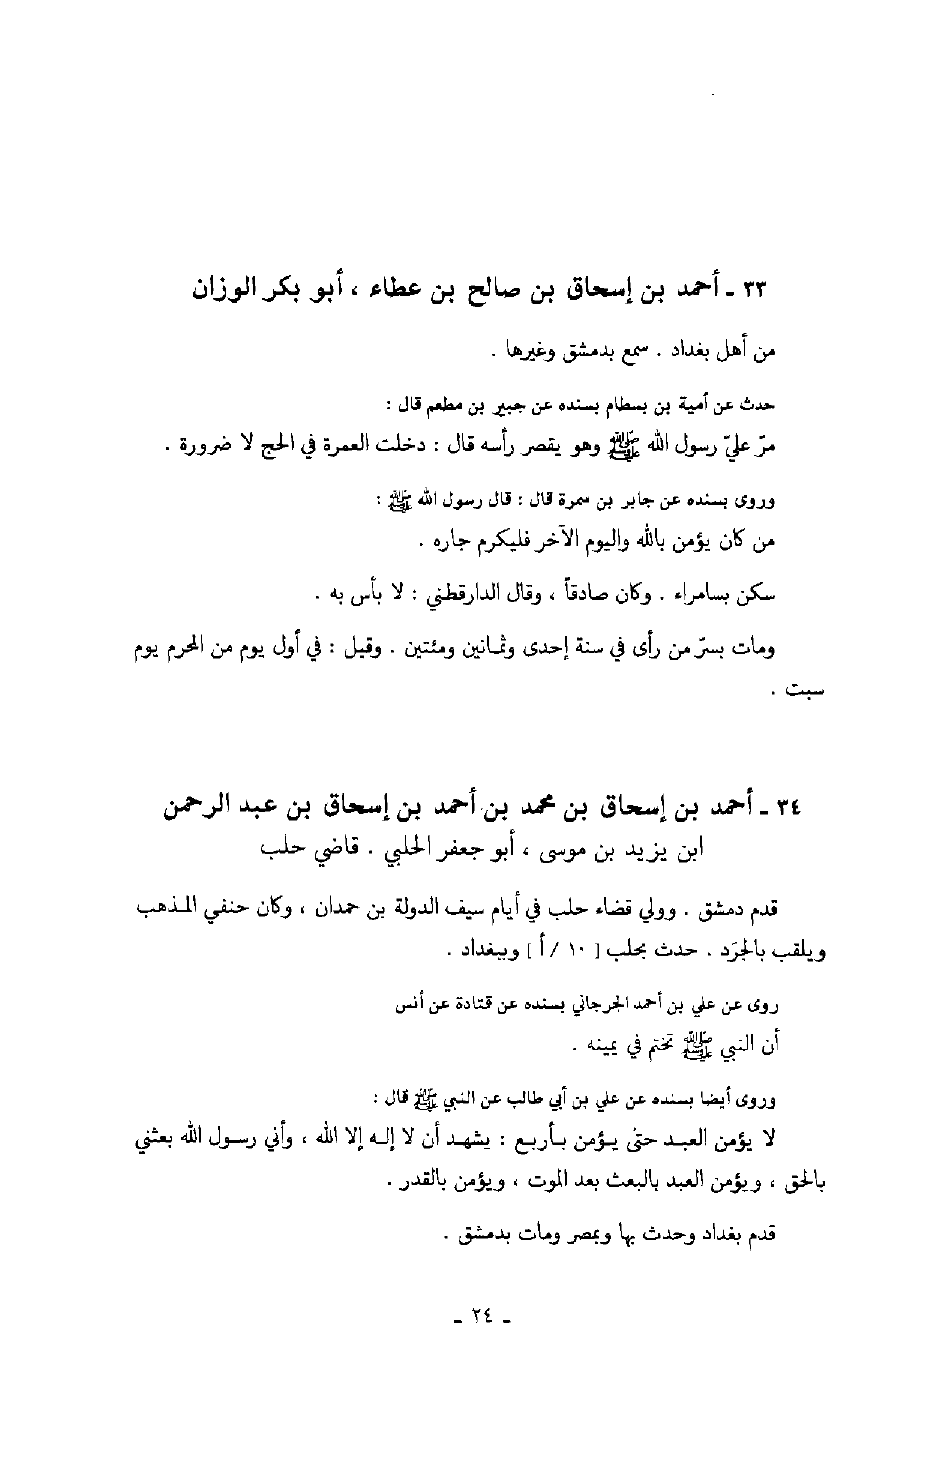 ٣٣ ـ أحمد بن إسحاق بن صالح بن عطاء ، أبو بكر الوزان
من أهل بغداد . سمع بدمشق وغيرها .
حدث عن أمية بن بسطام بسنده عن جبير بن مطعم قال :
مرّ عليّ رسول الله ﷺ وهو يقصر رأسه قال : دخلت العمرة في الحج لا ضرورة .
وروى بسنده عن جابر بن سمرة قال : قال رسول الله ﷺ :
من كان يؤمن بالله واليوم الآخر فليكرم جاره .
سكن بسامراء . وكان صادقاً ، وقال الدارقطني : لا بأس به .
ومات بسرّ من رأى في سنة إحدى وثمانين ومئتين . وقيل : في أول يوم من المحرم يوم
سبت .
٣٤ ـ أحمد بن إسحاق بن محمد بن أحمد بن إسحاق بن عبد الرحمن
ابن يزيد بن موسى ، أبو جعفر الحلبي . قاضي حلب
قدم دمشق . وولي قضاء حلب في أيام سيف الدولة بن حمدان ، وكان حنفي المذهب
ويلقب بالجرَد . حدث بحلب [ ١٠ / أ ] وببغداد .
روى عن علي بن أحمد الجرجاني بسنده عن قتادة عن أنس
أن النبي ﷺ تختم في يمينه .
وروى أيضا بسنده عن علي بن أبي طالب عن النبي ﷺ قال :
لا يؤمن العبد حتى يؤمن بأربع : يشهد أن لا إله إلا الله ، وأني رسول الله بعثني
بالحق ، ويؤمن العبد بالبعث بعد الموت ، ويؤمن بالقدر .
قدم بغداد وحدث بها وبمصر ومات بدمشق .
ـ ٢٤ ـ